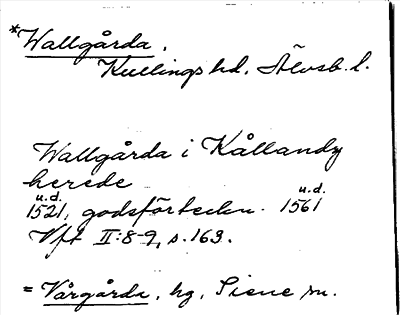 *Wallgårda,
Kullings hd. Älvsb. l.
Wallgårda i Kållandz
herede
u.d. u.d.
1521, godsförteckn. 1561
Vft II:8-9, s. 163.
= Vårgårda, hg, Siene sn.